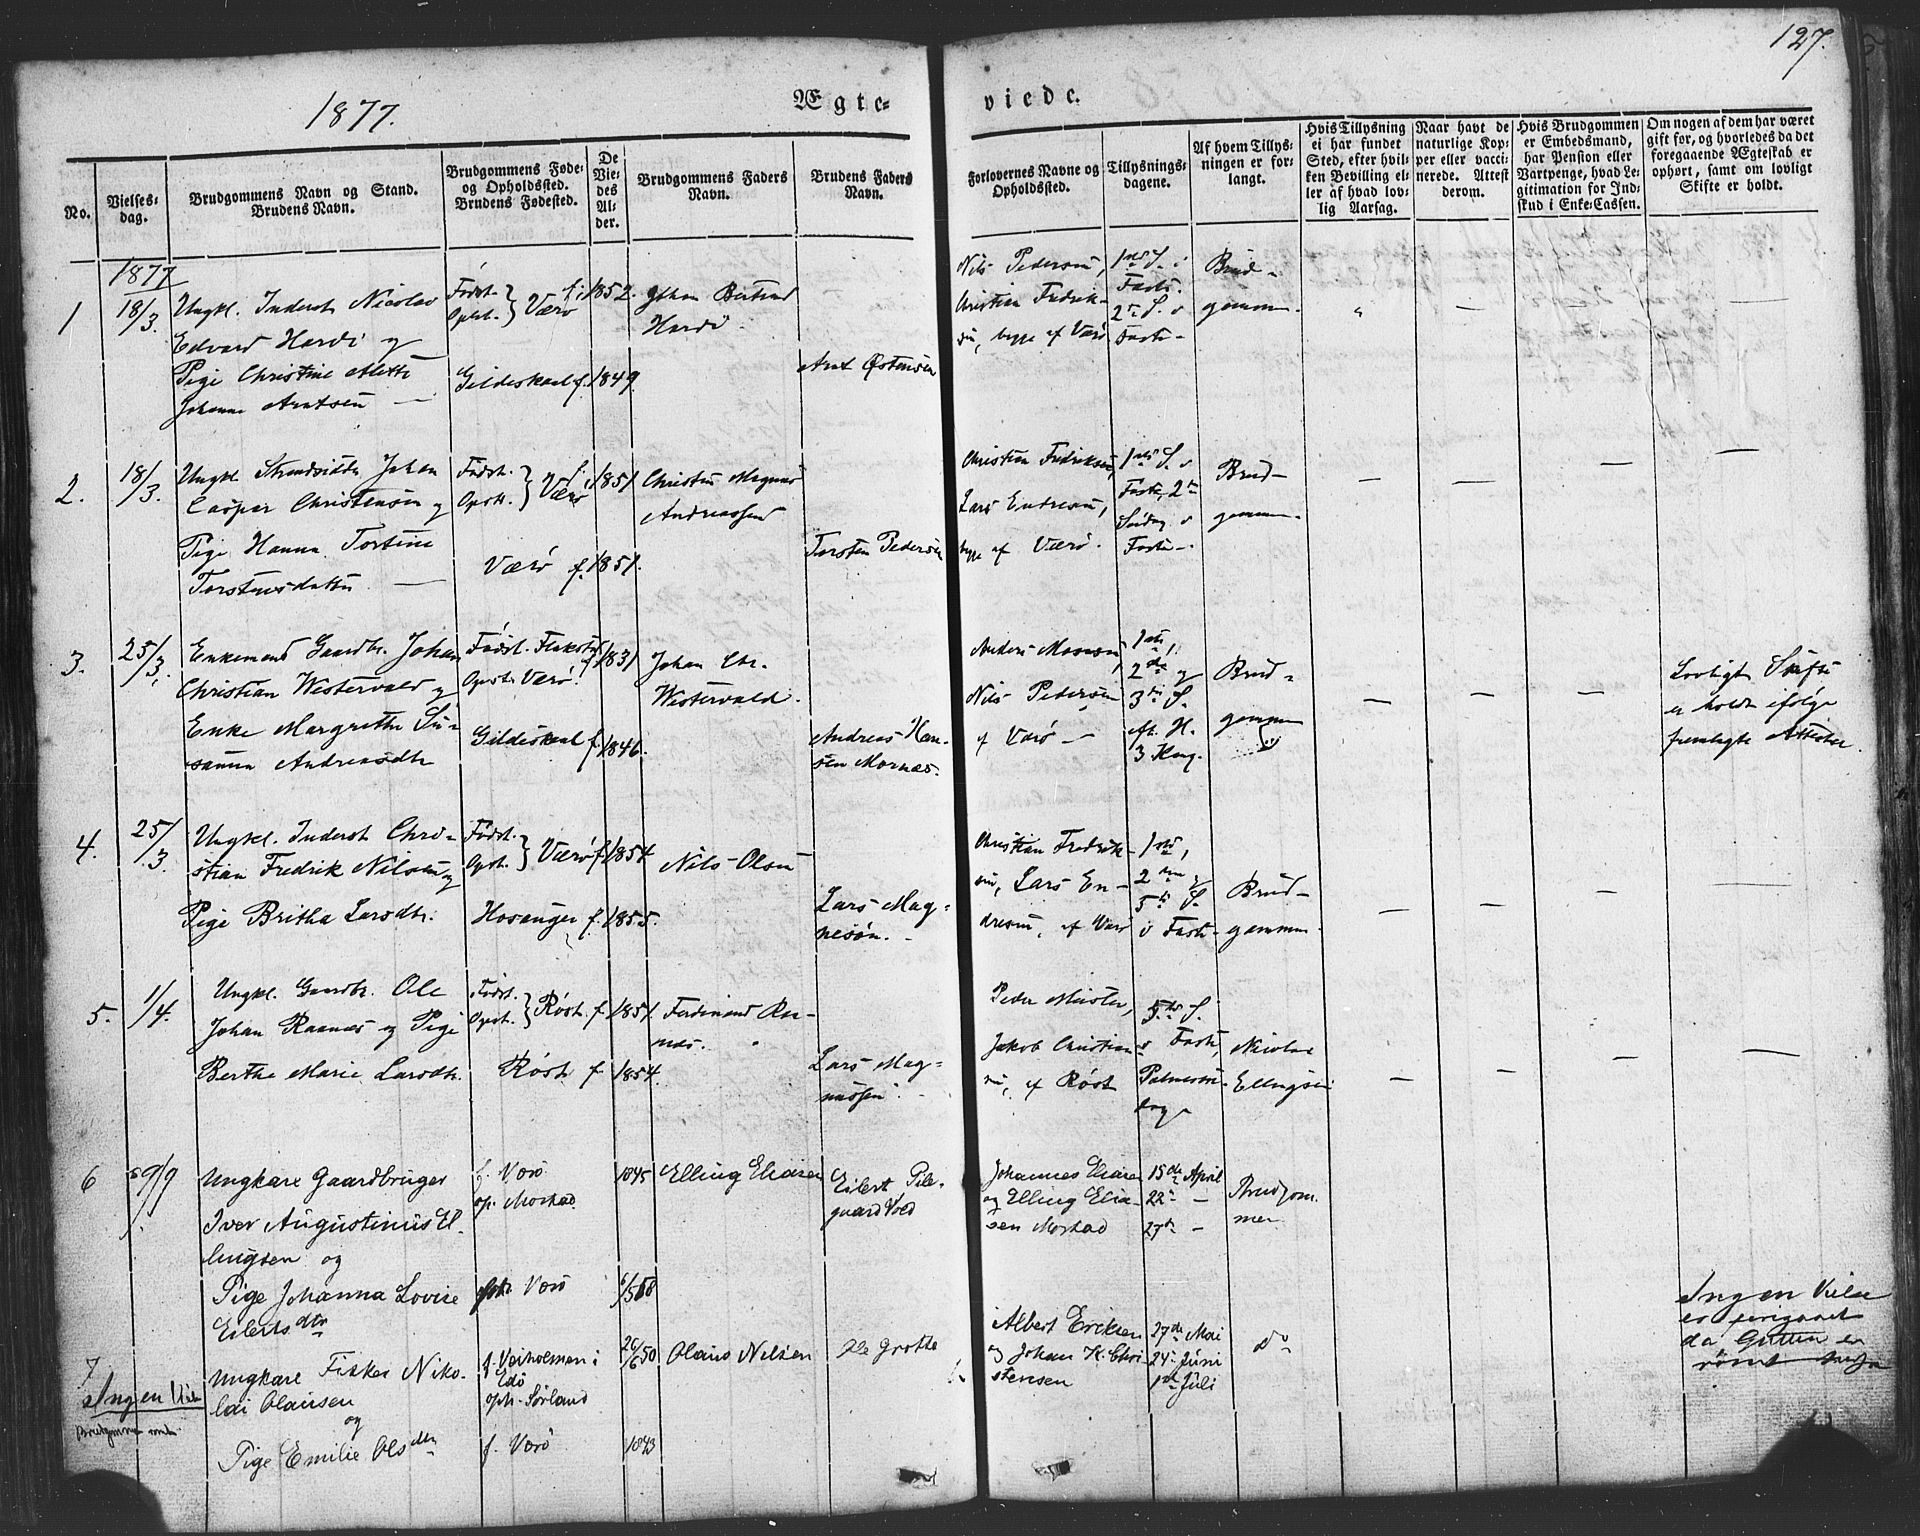 127.
1877.
Ægte=
viede.
No.
Vielses=
dag.
Brudgommens Navn og Stand.
Brudens Navn.
Brudgommens Føde=
og Opholdssted.
Brudens Fødested.
De
Vie=
des
Al=
der.
Brudgommens Faders
Navn.
Brudens Faders
Navn.
Forlovernes Navne og
Opholdssted.
Tillysnings=
dagene.
Af hvem Tillys=
ningen er for=
langt.
Hvis Tillysning
ei har fundet
Sted, efter hvil=
ken Bevilling el=
ler af hvad lov=
lig Aarsag.
Naar havt de
naturlige Kop=
per eller vacci=
nerede. Attest
derom.
Hvis Brudgommen
er Embedsmand,
har Pension eller
Vartpenge, hvad Le=
gitimation for Ind=
skud i Enke=Cassen.
Om nogen af dem har været
gift før, og hvorledes da det
foregaaende Ægteskab er
ophørt, samt om lovligt
Skifte er holdt.
1877
1
18/3.
Ungkl. Inderst Nicolai
Edvard Hardi og
Pige Christine Alette
Johanne Arntsen —
Födst.
Opht. } Værö
Gildeskaal f.
1852.
1849.
Johan Bertend
Hardi.
Arnt Østensen
Nils Pedersen,
Christian Fredrik-
sen, begge af Værö
1ste S. i
Faste.
2den S. i
Faste -
Brud-
gommen.
2.
18/3.
Ungkl. Strandsidder Johan
Casper Christensen og
Pige Hanna Tortine
Torstensdatter —
Födst.
Opht. } Værö
Værö f.
1851
1851.
Christen Magnus
Andreassen
Torsten Pedersen
Christian Fredriksen,
Lars Endresen,
begge af Værö.
1ste S. i
Faste, 2den
Söndag i
Faste -
Brud-
gommen.
3.
25/3.
Enkemand Gaardbr. Johan
Christian Westervald og
Enke Margrethe Su-
sanna Andreasdtr
Födst. Flakstad
Opht. Værö
Gildeskaal f.
1831
1846.
Johan Chr.
Westervald.
Andreas Han-
sen Mornæs.
Anders Monsen,
Nils Pedersen
af Værö —
1ste,
2den og
3die S.
eft. H.
3 Kong.
Brud-
gommen
Lovligt Skifte
er holdt ifölge
fremlagte Attester.
4.
25/3.
Ungkl. Inderst Chri-
stian Fredrik Nilsen og
Pige Britha Larsdtr.
Födst.
Opht. } Værö f.
Hosanger f.
1854
1855.
Nils Olsen
Lars Mag-
nesön.
Christian Fredrik-
sen, Lars En-
dresen, af Værö
1ste,
2den og
5te S.
i Faste.
Brud-
gommen.
5.
1/4.
Ungkl. Gaardbr. Ole
Johan Raanæs og Pige
Berthe Marie Larsdtr.
Födst.
Opht. } Röst. f.
Röst f
1851.
1854.
Ferdinand Ra-
næs.
Lars Mag-
nussen.
Peder Mister,
Jakob Christian-
sen, af Röst
5te S.
i Faste,
Palmesön-
dag
Nicolai
Ellingsen
6
9/9
Ungkare Gaardbruger
Iver Augustinus El-
lingsen og
Pige Johanna Lovise
Eilertsdtr
f. Værö
op. Mostad
Værö
1845
6/5 58
Elling Eliasen
Eilert Pile-
gaard Voed
Johannes Eliasen
og Elling Elia-
sen Mostad
15de April
22 —
27de —
Brudgom
men
7
Ingen Vielse
Ungkare Fisker Niko-
lai Olausen
og
Pige Emilie Olsdtr
f. Veiholmen i
Edö
oph. Sörland
f. Værö
26/6 50
1843
Olaus Nilsen
Ole Grotte
Albert Eriksen
og Johan H. Chri-
stensen
27de Mai
24 Juni
1ste Juli
do
Ingen Vielse
er foregaaet
da Gutten er
römt